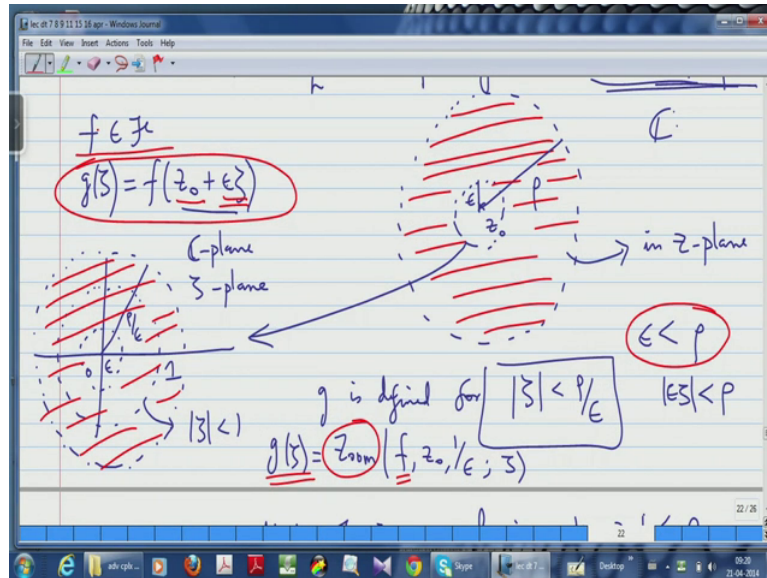 lec dt 7 8 9 11 15 16 apr - Windows Journal
File Edit View Insert Actions Tools Help
f ∈ ℱ
g(ζ) = f(z₀ + εζ)
ℂ
ε
ρ
z₀
in z-plane
ℂ-plane
ζ-plane
ρ/ε
0
ε
1
|ζ|<1
ε < ρ
g is defined for |ζ| < ρ/ε
|εζ| < ρ
g(ζ) = Zoom(f, z₀, 1/ε; ζ)
22 / 26
22
adv cplx ...
Skype
lec dt 7 ...
Desktop
09:20
21-04-2014